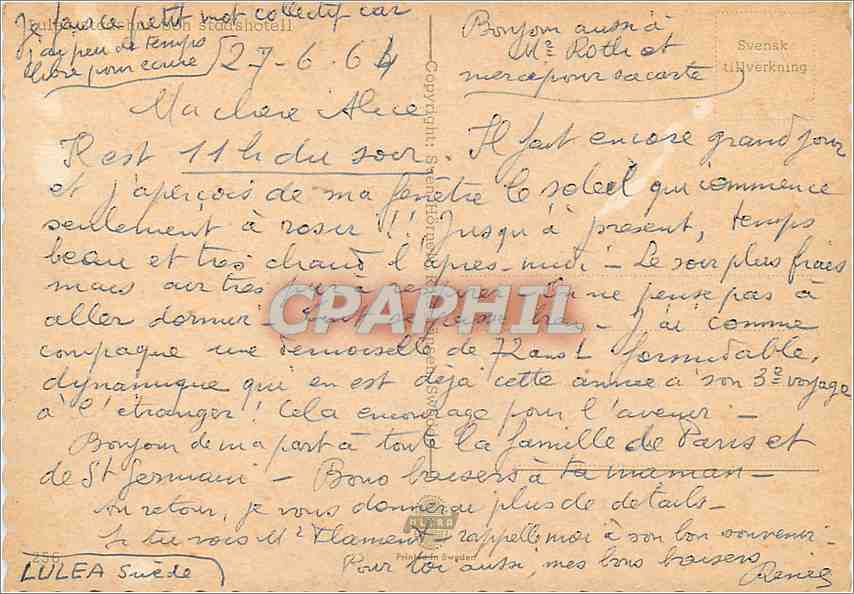 Je fais ce petit mot collectif car
j'ai peu de temps
libre pour écrire
27-6-64
Bonjour aussi à
Me Roth et
merci pour sa carte
Svensk
tillverkning
Ma chère Alice
Il est 11h du soir. Il fait encore grand jour
et j'aperçois de ma fenêtre le soleil qui commence
seulement à rosir !! Jusqu'à présent, temps
beau et très chaud l'après-midi - Le soir plus frais
mais air très pur à respirer - On ne pense pas à
aller dormir - Tout se passe bien - J'ai comme
compagne une demoiselle de 72 ans ! formidable,
dynamique qui en est déjà cette année à son 3e voyage
à l'étranger ! Cela encourage pour l'avenir -
Bonjour de ma part à toute la famille de Paris et
de St Germain - Bons baisers à ta maman -
Au retour, je vous donnerai plus de détails -
Si tu vois Me Flament - rappelle moi à son bon souvenir -
Pour toi aussi, mes bons baisers
Renée
256
LULEA Suède
Printed in Sweden
ULTRA
CPAPHIL